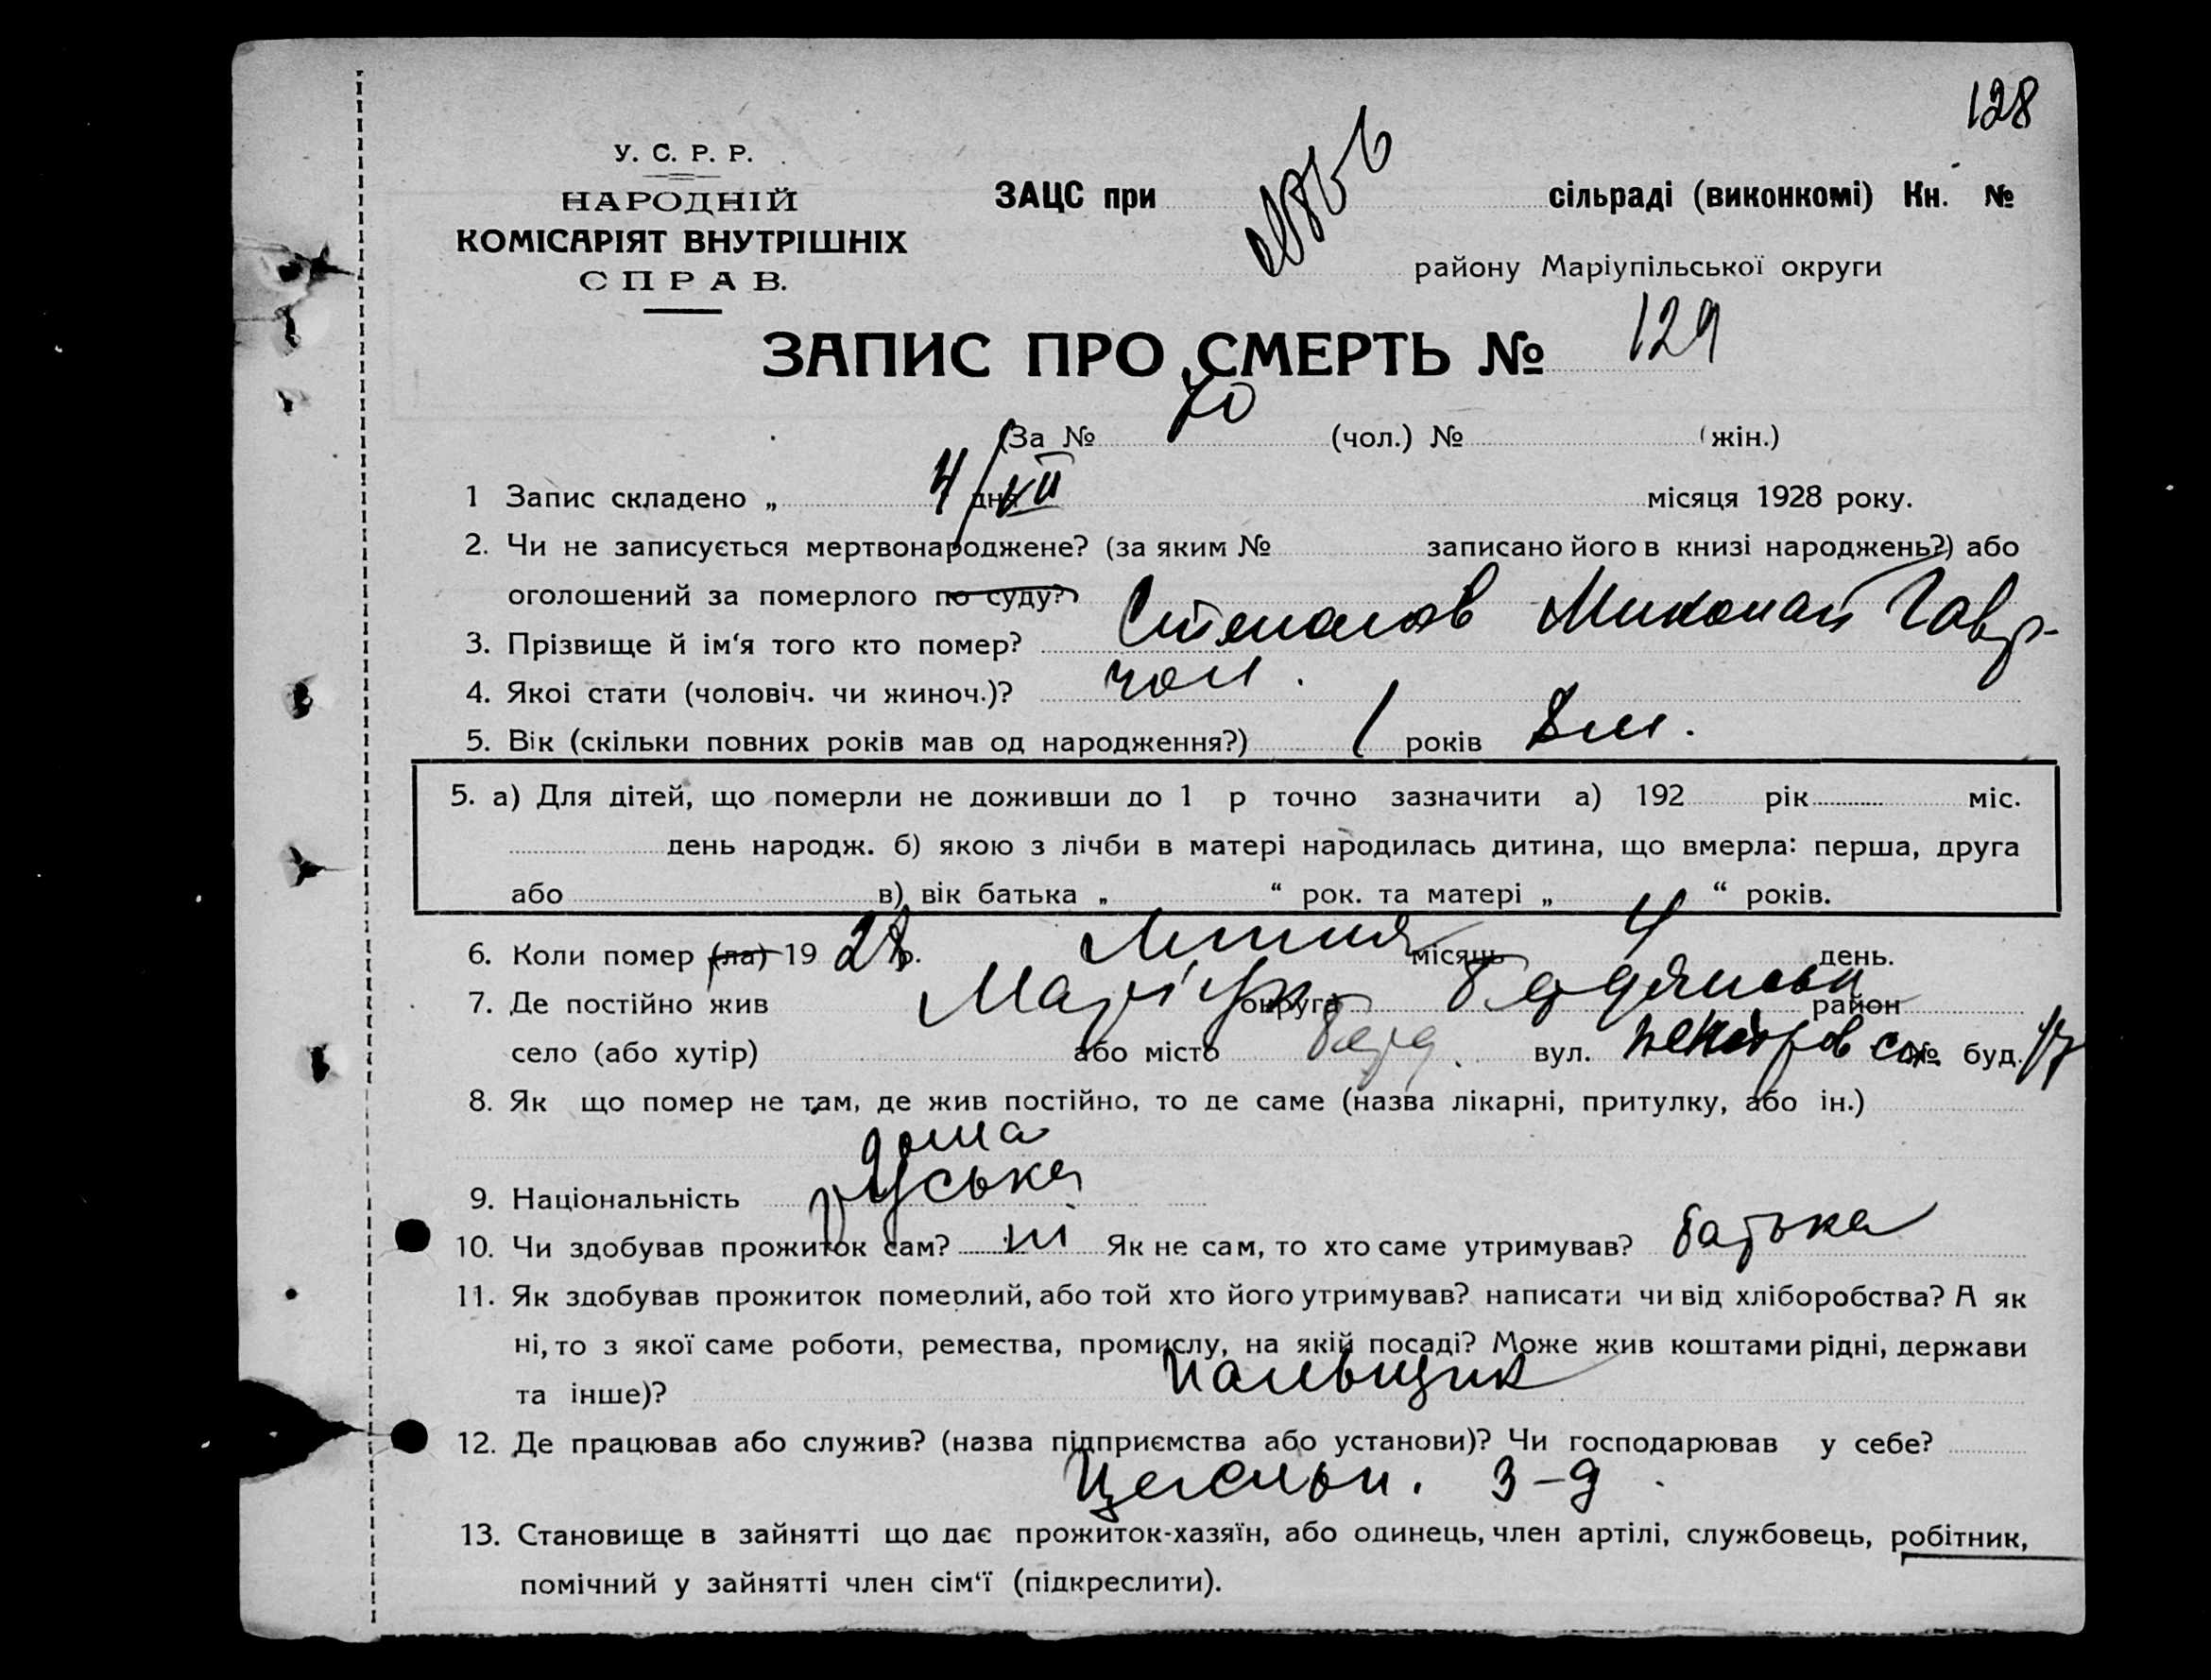 128
У. С. Р. Р.
НАРОДНІЙ
КОМІСАРІЯТ ВНУТРІШНІХ
СПРАВ.
ЗАЦС при сільраді (виконкомі) Кн. №
району Маріупільської округи
ЗАПИС ПРО СМЕРТЬ № 129
(За № 70 (чол.) № (жін.)
1 Запис складено „ 4/VII дня місяця 1928 року.
2. Чи не записується мертвонароджене? (за яким № записано його в книзі народжень?) або
оголошений за померлого по суду?
3. Прізвище й ім‘я того кто помер? Степанов Миколай Гавр-
4. Якоі стати (чоловіч. чи жиноч.)? чол.
5. Вік (скільки повних років мав од народження?) 1 років 8 м.
5. а) Для дітей, що померли не доживши до 1 р точно зазначити а) 192 рік міс.
день народж. б) якою з лічби в матері народилась дитина, що вмерла: перша, друга
або в) вік батька „ “ рок. та матері „ “ років.
6. Коли помер (ла) 19 28 р. Липня місяць 4 день.
7. Де постійно жив Маріуп округа Бердянськ район
село (або хутір) або місто Берд. вул. № буд. 17
8. Як що помер не там, де жив постійно, то де саме (назва лікарні, притулку, або ін.)
дома
9. Національність руська
10. Чи здобував прожиток сам? ні Як не сам, то хто саме утримував? батька
11. Як здобував прожиток померлий, або той хто його утримував? написати чи від хліборобства? А як
ні, то з якої саме роботи, ремества, промислу, на якій посаді? Може жив коштами рідні, держави
та інше)? пальщик
12. Де працював або служив? (назва підприємства або установи)? Чи господарював у себе?
Цегельн. з-д.
13. Становище в зайнятті що дає прожиток-хазяїн, або одинець, член артілі, службовець, робітник,
помічний у зайнятті член сім‘ї (підкреслити).